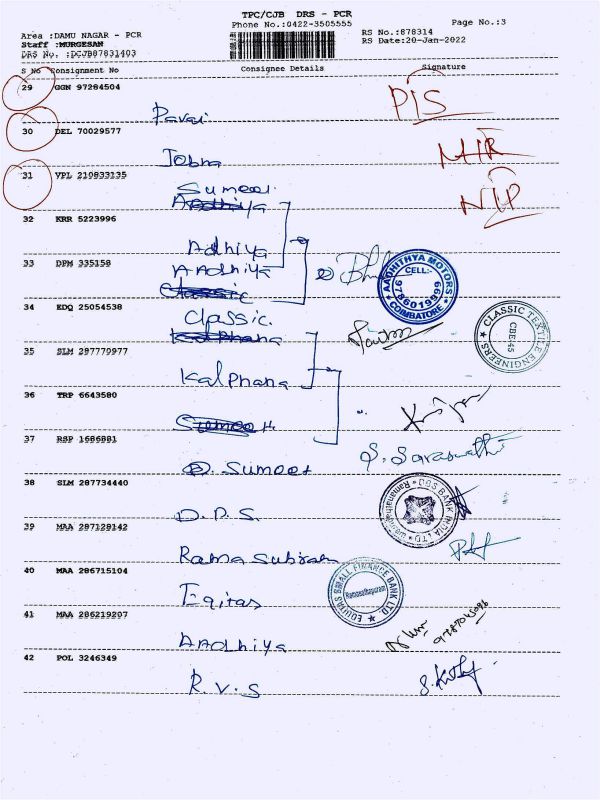 TPC/CJB DRS - PCR
Phone No.:0422-3505555
Page No.:3
Area :DAMU NAGAR - PCR
Staff :MURGESAN
DRS No. :DCJB07831403
RS No.:878314
RS Date:20-Jan-2022
S No Consignment No Consignee Details Signature
29 GGN 97284504
Pavai
PIS
30 DEL 70029577
Jobna
31 VPL 210833135
Sumeet
Aadhiya
NIP
32 KRR 5223996
Adhiya
33 DPM 335158
AAdhiya
Classic
AADHITHYA MOTORS
CELL:-
9786019999
COIMBATORE
34 EDQ 25054538
Classic
Kalphana
CLASSIC TEXTILE ENGINEERS
CBE-45
35 SLM 287770977
Kalphana
36 TRP 6643580
Sumeet
37 RSP 1686881
Sumeet
S. Saraswathi
38 SLM 287734440
D.P.S.
DBS BANK INDIA LTD
Ramanathapuram
39 MAA 287128142
Rama Subram
40 MAA 286715104
Eqitas
EQUITAS SMALL FINANCE BANK LTD.
Ramanathapuram
41 MAA 286219207
AAdhiya
42 POL 3246349
R.V.S